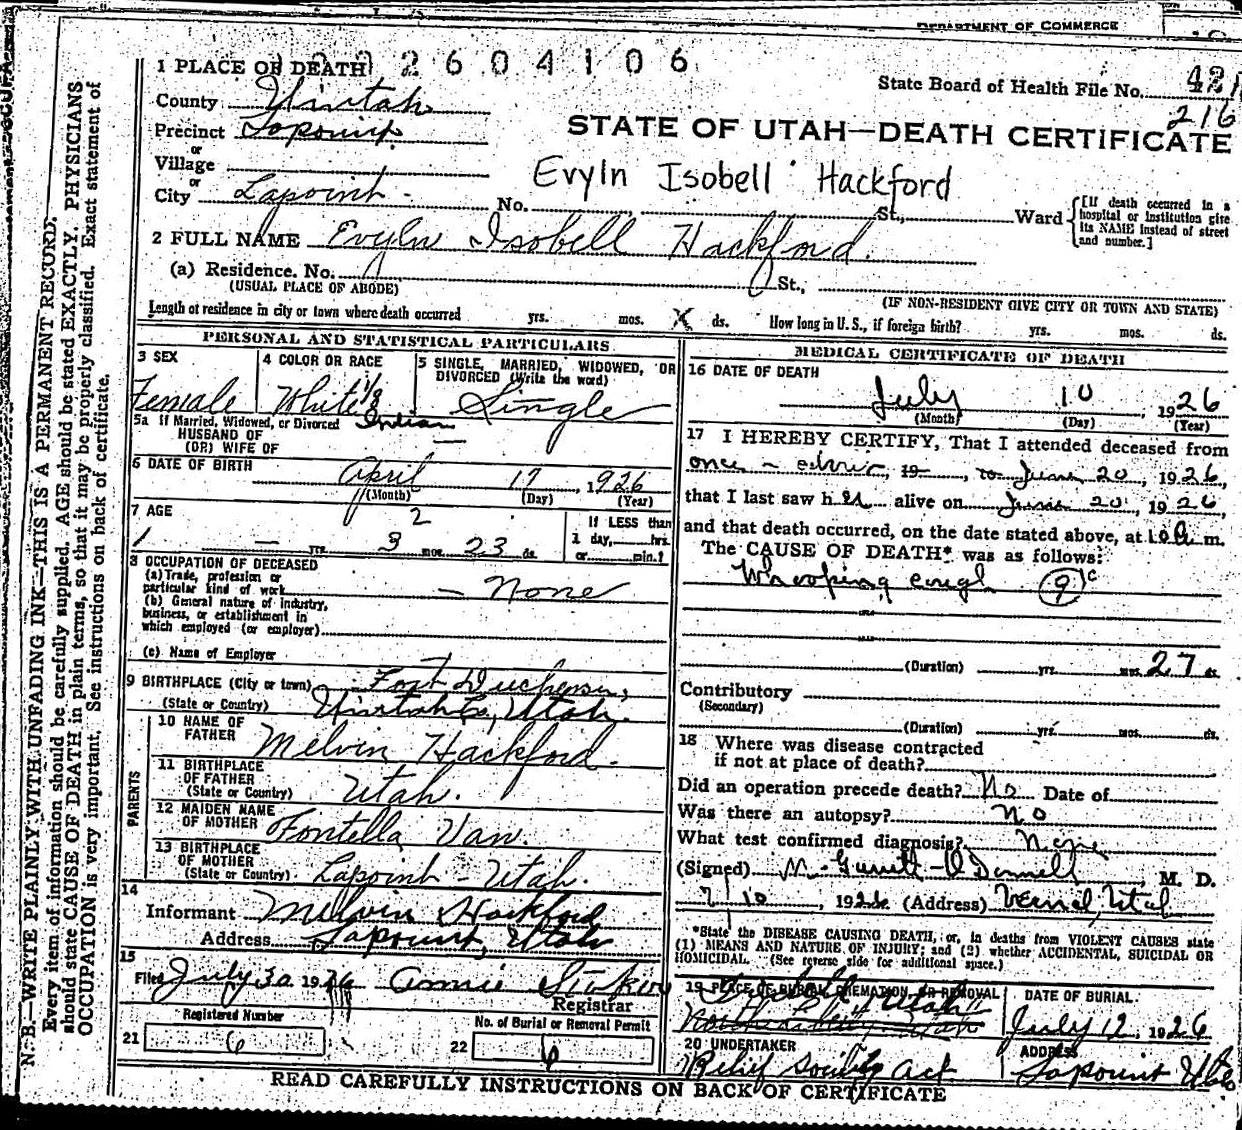 DEPARTMENT OF COMMERCE
2604106
1 PLACE OF DEATH
State Board of Health File No. 421
216
County Uintah
Precinct Lapoint
or
STATE OF UTAH—DEATH CERTIFICATE
Village
or
Evyln Isobell Hackford
City Lapoint No. St., Ward
[If death occurred in a hospital or institution give its NAME instead of street and number.]
2 FULL NAME Evyln Isobell Hackford.
(a) Residence. No. St.,
(USUAL PLACE OF ABODE) (IF NON-RESIDENT GIVE CITY OR TOWN AND STATE)
Length of residence in city or town where death occurred yrs. mos. X ds. How long in U. S., if foreign birth? yrs. mos. ds.
PERSONAL AND STATISTICAL PARTICULARS
3 SEX 4 COLOR OR RACE 5 SINGLE, MARRIED, WIDOWED, OR DIVORCED (Write the word)
Female White 1/8 Indian Single
5a If Married, Widowed, or Divorced
HUSBAND OF
(OR) WIFE OF —
6 DATE OF BIRTH April 17, 1926
(Month) (Day) (Year)
7 AGE 2
— yrs. 3 mos. 23 ds.
If LESS than
1 day, hrs.
or min.?
8 OCCUPATION OF DECEASED
(a) Trade, profession or
particular kind of work — None
(b) General nature of industry,
business, or establishment in
which employed (or employer)
(c) Name of Employer
9 BIRTHPLACE (City or town) Fort Duchesne,
(State or Country) Uintah Co, Utah.
PARENTS
10 NAME OF
FATHER Melvin Hackford.
11 BIRTHPLACE
OF FATHER
(State or Country) Utah.
12 MAIDEN NAME
OF MOTHER Fontella Van.
13 BIRTHPLACE
OF MOTHER
(State or Country) Lapoint - Utah.
14
Informant Melvin Hackford
Address Lapoint, Utah
15
Filed July 30 1926 Annie
Registrar
Registered Number No. of Burial or Removal Permit
21 6 22 6
MEDICAL CERTIFICATE OF DEATH
16 DATE OF DEATH
July 10, 1926
(Month) (Day) (Year)
17 I HEREBY CERTIFY, That I attended deceased from
once - , 19 , to June 20, 1926,
that I last saw her alive on June 20, 1926,
and that death occurred, on the date stated above, at m.
The CAUSE OF DEATH* was as follows:
Whooping cough 9 c
(Duration) yrs. mos. 27 ds.
Contributory
(Secondary)
(Duration) yrs. mos. ds.
18 Where was disease contracted
if not at place of death?
Did an operation precede death? No Date of
Was there an autopsy? No
What test confirmed diagnosis? None
(Signed) M. O'Donnell, M. D.
7/10, 1926 (Address) Vernal, Utah
*State the DISEASE CAUSING DEATH, or, in deaths from VIOLENT CAUSES state
(1) MEANS AND NATURE OF INJURY; and (2) whether ACCIDENTAL, SUICIDAL OR
HOMICIDAL. (See reverse side for additional space.)
19 PLACE OF BURIAL, CREMATION, OR REMOVAL DATE OF BURIAL
Utah
Utah July 12, 1926
20 UNDERTAKER ADDRESS
Relief Society Act Lapoint Utah
READ CAREFULLY INSTRUCTIONS ON BACK OF CERTIFICATE
N. B.—WRITE PLAINLY WITH UNFADING INK—THIS IS A PERMANENT RECORD.
Every item of information should be carefully supplied. AGE should be stated EXACTLY. PHYSICIANS
should state CAUSE OF DEATH in plain terms, so that it may be properly classified. Exact statement of
OCCUPATION is very important. See instructions on back of certificate.